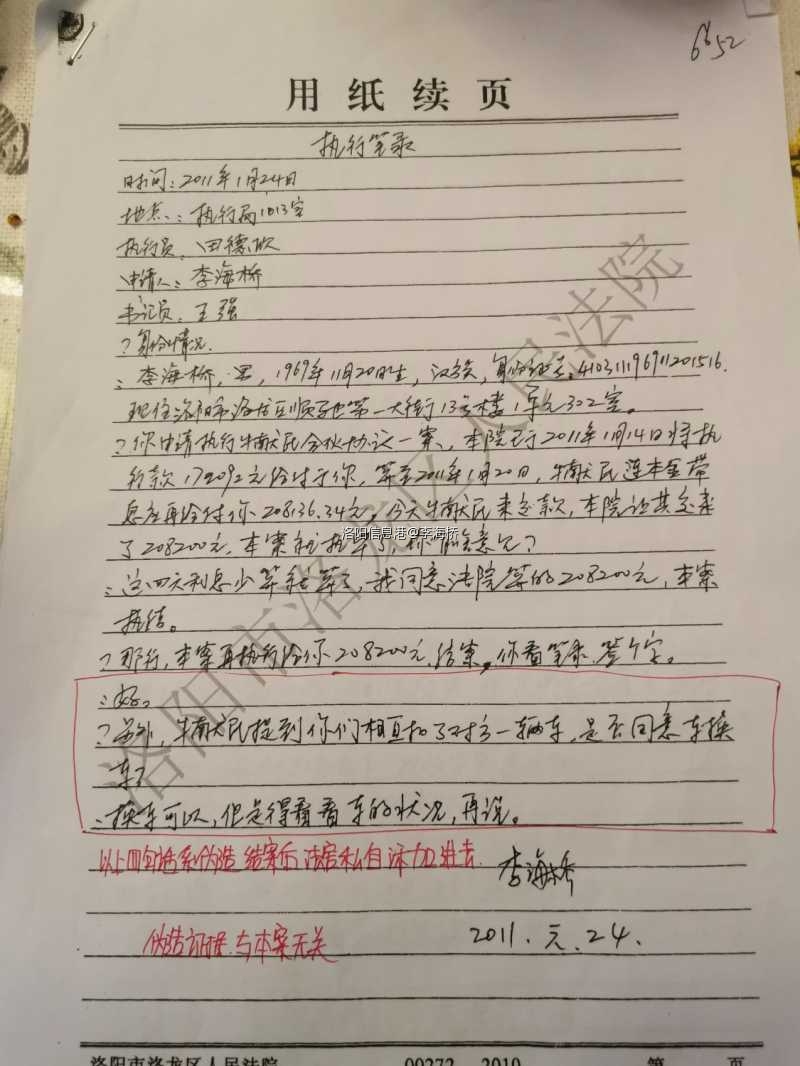 6852
用纸续页
执行笔录
时间:2011年1月24日
地点:执行局1013室
执行员:田德欣
申请人:李海桥
书记员:王强
?身份情况.
:李海桥,男,1969年11月20日生,汉族,身份证号:410311196911201516.
现住洛阳市洛龙区顺驰第一大街13号楼1单元302室。
?你申请执行牛献民合伙协议一案,本院已于2011年1月14日将执
行款172092元给付于你,算至2011年1月20日,牛献民连本金带
息应再给付你208136.34元,今天牛献民来交款,本院让其交来
了208200元,本案就执毕了,你啥意见?
:这四天利息少算就算了,我同意法院算的208200元,本案
执结。
?那行,本案再执行给你208200元.结案,你看笔录,签个字。
:好。
?另外,牛献民提到你们相互扣了对方一辆车,是否同意车换
车?
:换车可以,但是得看看车的状况,再说。
以上四句话系伪造 结案后 法官私自添加进去.
李海桥
伪造证据 与本案无关
2011.元.24.
洛阳市洛龙区人民法院 00272—2010 第 页
洛阳市洛龙区人民法院
洛阳信息港@李海桥